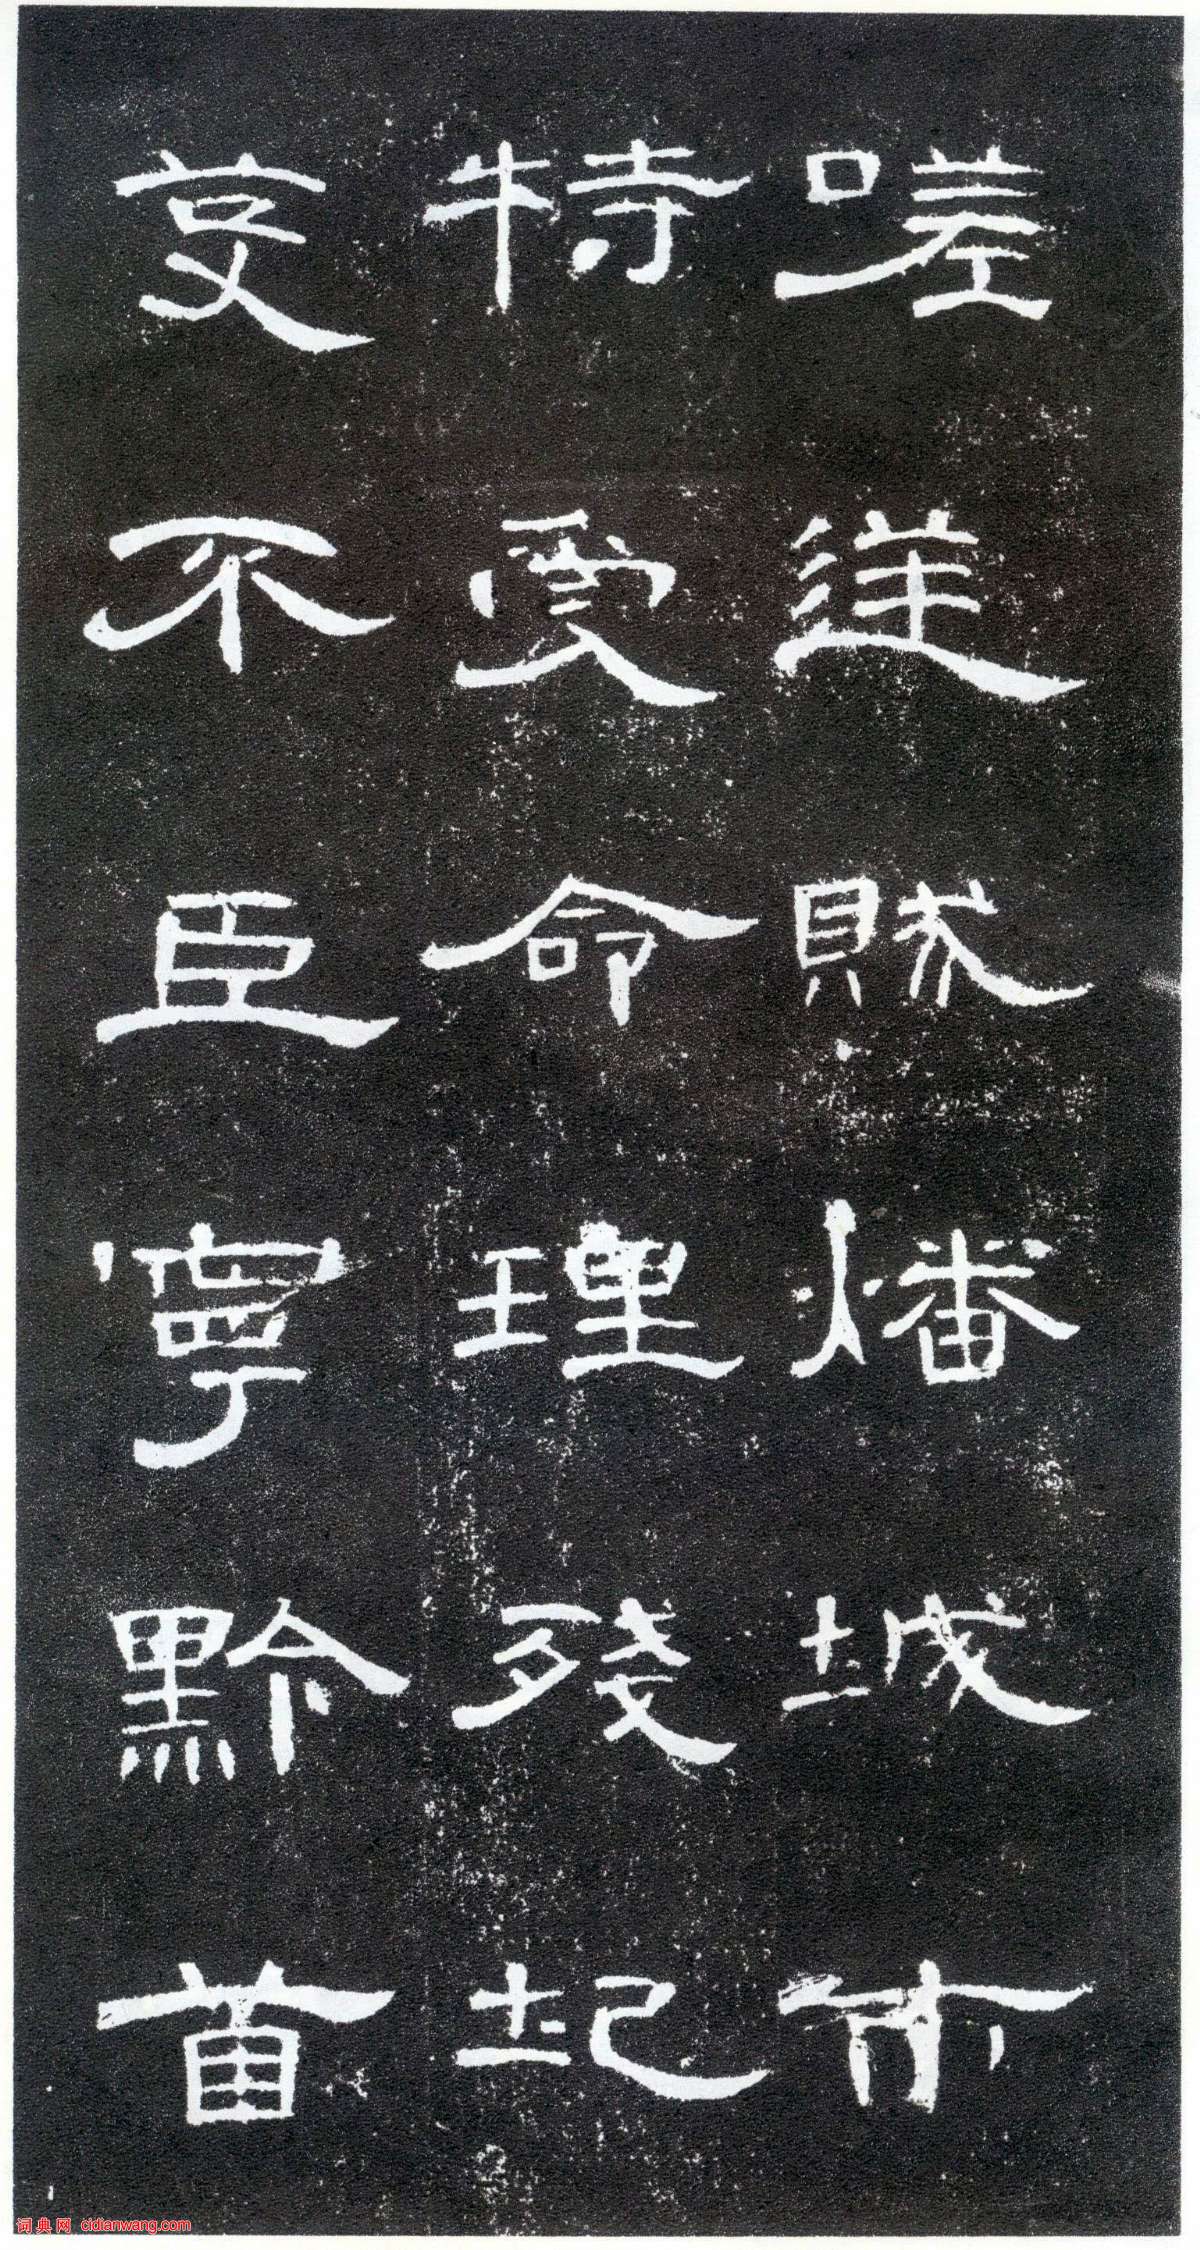 嗟逆賊燔城市
特受命理殘圮
芟不臣寧黔首
词典网 cidianwang.com